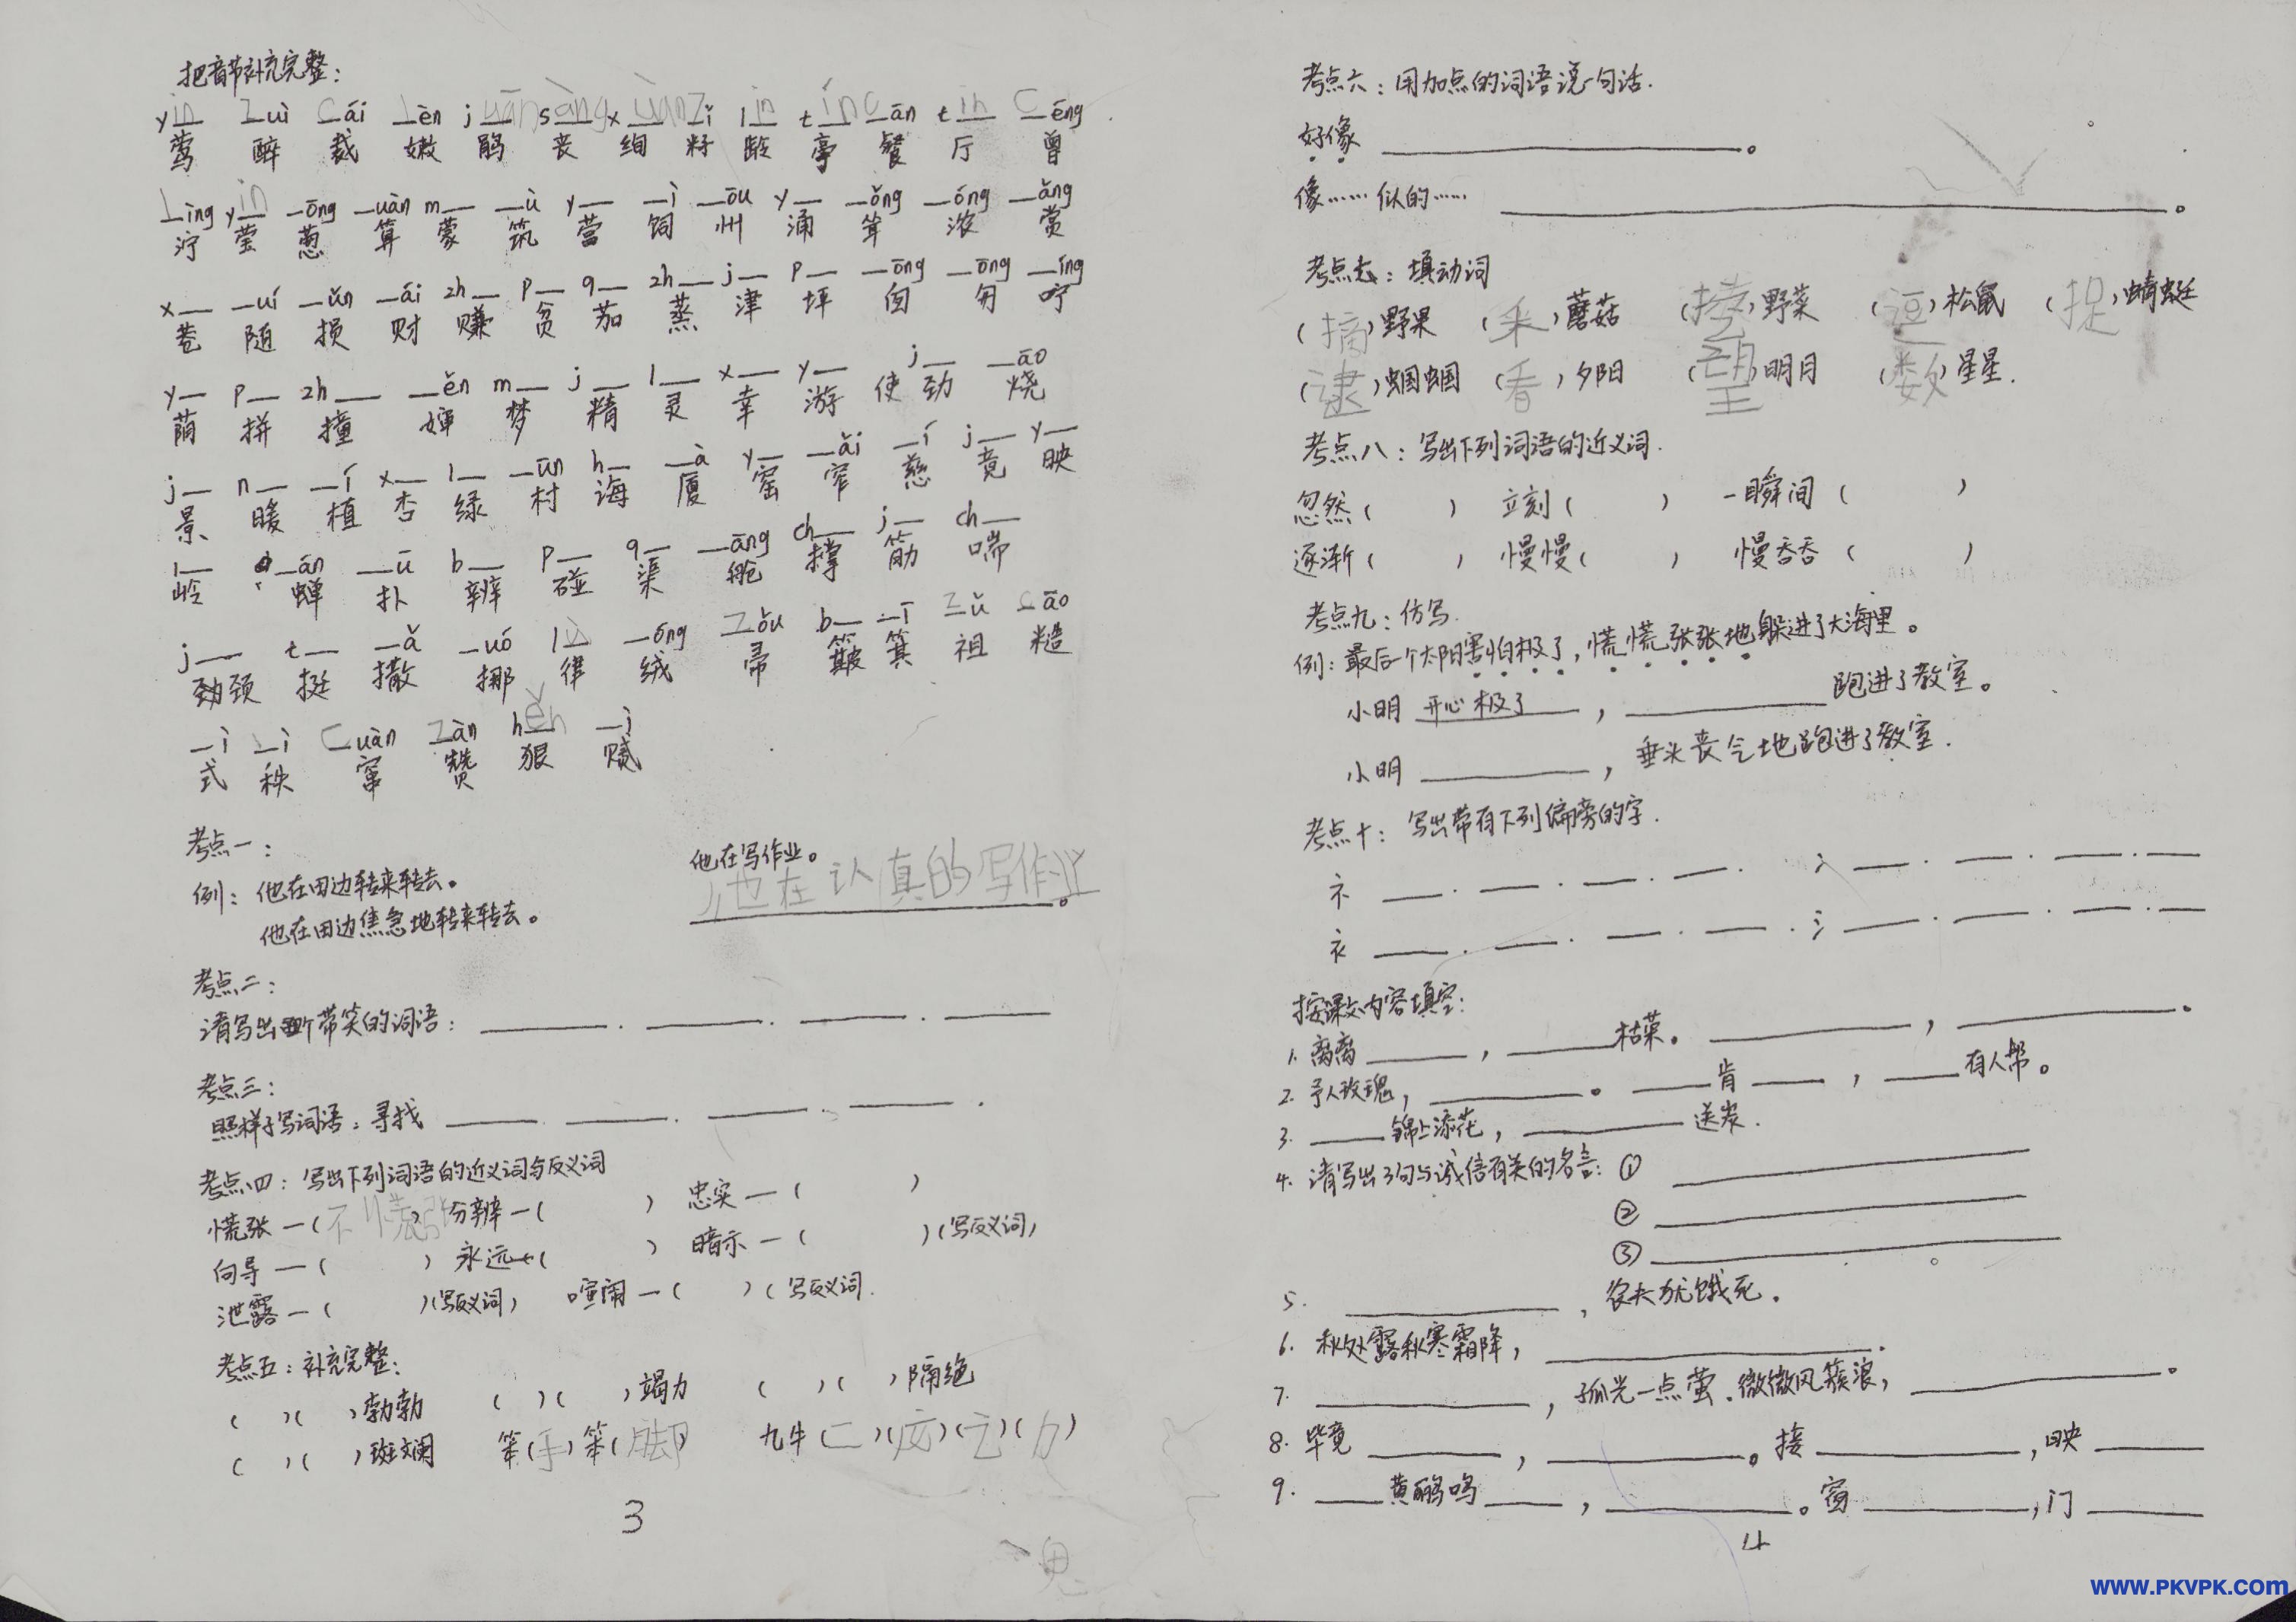 把音节补充完整:
yin zuì cái lèn juān sàng xùan zǐ lin tín cān tin céng
莺 醉 裁 嫩 鹃 丧 绚 籽 龄 亭 餐 厅 曾
lìng yin _ōng _uàn m__ _ù y__ _ì _ōu y__ _ǒng _óng _ǎng
泞 莹 葱 算 蒙 筑 营 饲 州 涌 耸 浓 赏
x__ _uí _ǔn _ái zh__ p__ q__ zh__ j__ p__ _ōng _ōng _íng
巷 随 损 财 赚 贫 茄 蒸 津 坪 囱 匆 咛
y__ p__ zh__ _ěn m__ j__ l__ x__ y__ j__ _āo
荫 拼 撞 婶 梦 精 灵 幸 游 使劲 烧
j__ n__ _í x__ l__ _ūn h__ _à y__ _ǎi _í j__ y__
景 暖 植 杏 绿 村 海 厦 窑 窄 慈 竟 映
l__ _án _ū b__ p__ q__ _āng ch__ j__ ch__
岭 蝉 扑 辨 碰 渠 舱 撑 筋 喘
j__ t__ _ǎ _uó lǜ _óng zǒu b__ _ī zǔ cāo
劲颈 挺 撒 挪 律 绒 帚 簸 箕 祖 糙
_ì _ì cuàn zàn hěn _i
式 秩 窜 赞 狠 贼
考点一:
例: 他在田边转来转去。 他在写作业。
他在田边焦急地转来转去。 他在认真的写作业。
考点二:
请写出四个带笑的词语: ____.____.____.____
考点三:
照样子写词语: 寻找 ____ ____.____.____.
考点四: 写出下列词语的近义词与反义词
慌张—(不慌张) 分辨—( ) 忠实—( )
向导—( ) 永远—( ) 暗示—( )(写反义词)
泄露—( )(写反义词) 喧闹—( )(写反义词.
考点五: 补充完整:
( )( )勃勃 ( )( )竭力 ( )( )隔绝
( )( )斑斓 笨(手)笨(脚) 九牛(二)( )( )(力)
3
考点六: 用加点的词语说一句话.
好像 ____。
像……似的…… ____。
考点七: 填动词
(摘)野果 (采)蘑菇 (挖)野菜 (逗)松鼠 (捉)蜻蜓
(逮)蝈蝈 (看)夕阳 (望)明月 (数)星星.
考点八: 写出下列词语的近义词.
忽然( ) 立刻( ) 一瞬间( )
逐渐( ) 慢慢( ) 慢吞吞( )
考点九: 仿写.
例: 最后一个太阳害怕极了,慌慌张张地躲进了大海里。
小明 开心极了 , ____ 跑进了教室。
小明 ____ , 垂头丧气地跑进了教室.
考点十: 写出带有下列偏旁的字.
礻 __.__.__.__. 冫 __.__.__.__
衤 __.__.__.__. 氵 __.__.__.__
按课文内容填空:
1. 离离____, ____枯荣。____, ____。
2. 予人玫瑰, ____。____肯____, ____有人帮。
3. ____锦上添花, ____送炭.
4. 请写出3句与诚信有关的名言: ① ____
② ____
③ ____
5. ____, 农夫犹饿死.
6. 秋处露秋寒霜降, ____.
7. ____, 孤光一点萤.微微风簇浪, ____。
8. 毕竟____, ____。接____, 映____
9. ____黄鹂鸣____, ____。窗____, 门____
4
www.PKVPK.com